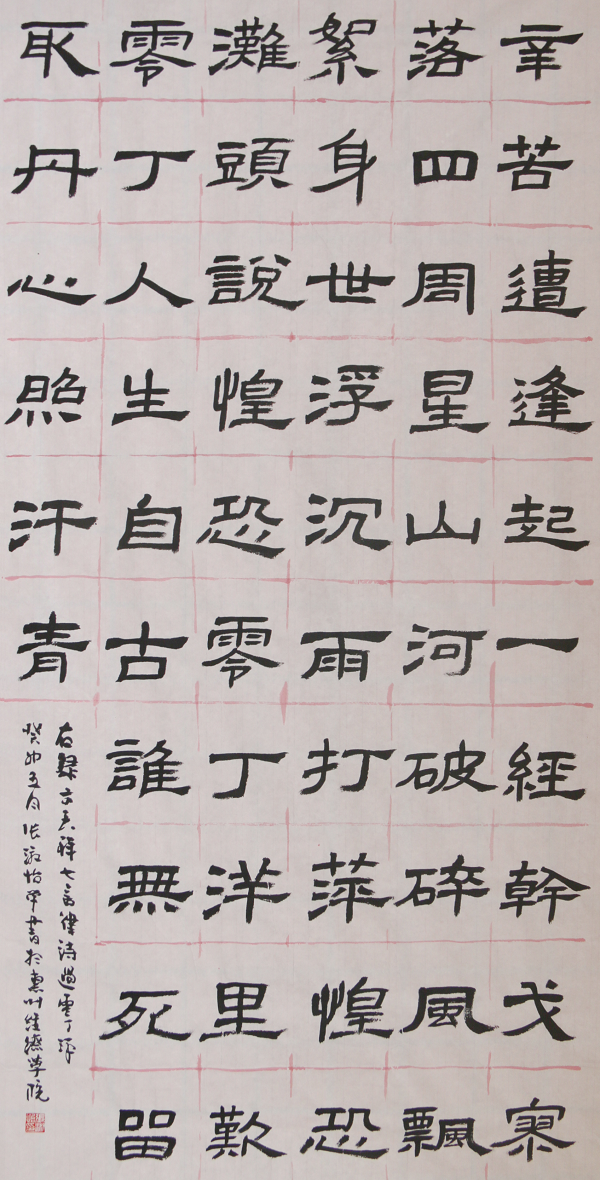 辛苦遭逢起一經幹戈寥
落四周星山河破碎風飄
絮身世浮沉雨打萍惶恐
灘頭說惶恐零丁洋里歎
零丁人生自古誰無死留
取丹心照汗青
右錄文天祥七言律詩過零丁洋
癸卯五月張淑怡書於惠州經濟學院